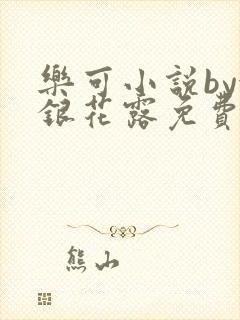 樂可小說by
銀花露免費
熊山